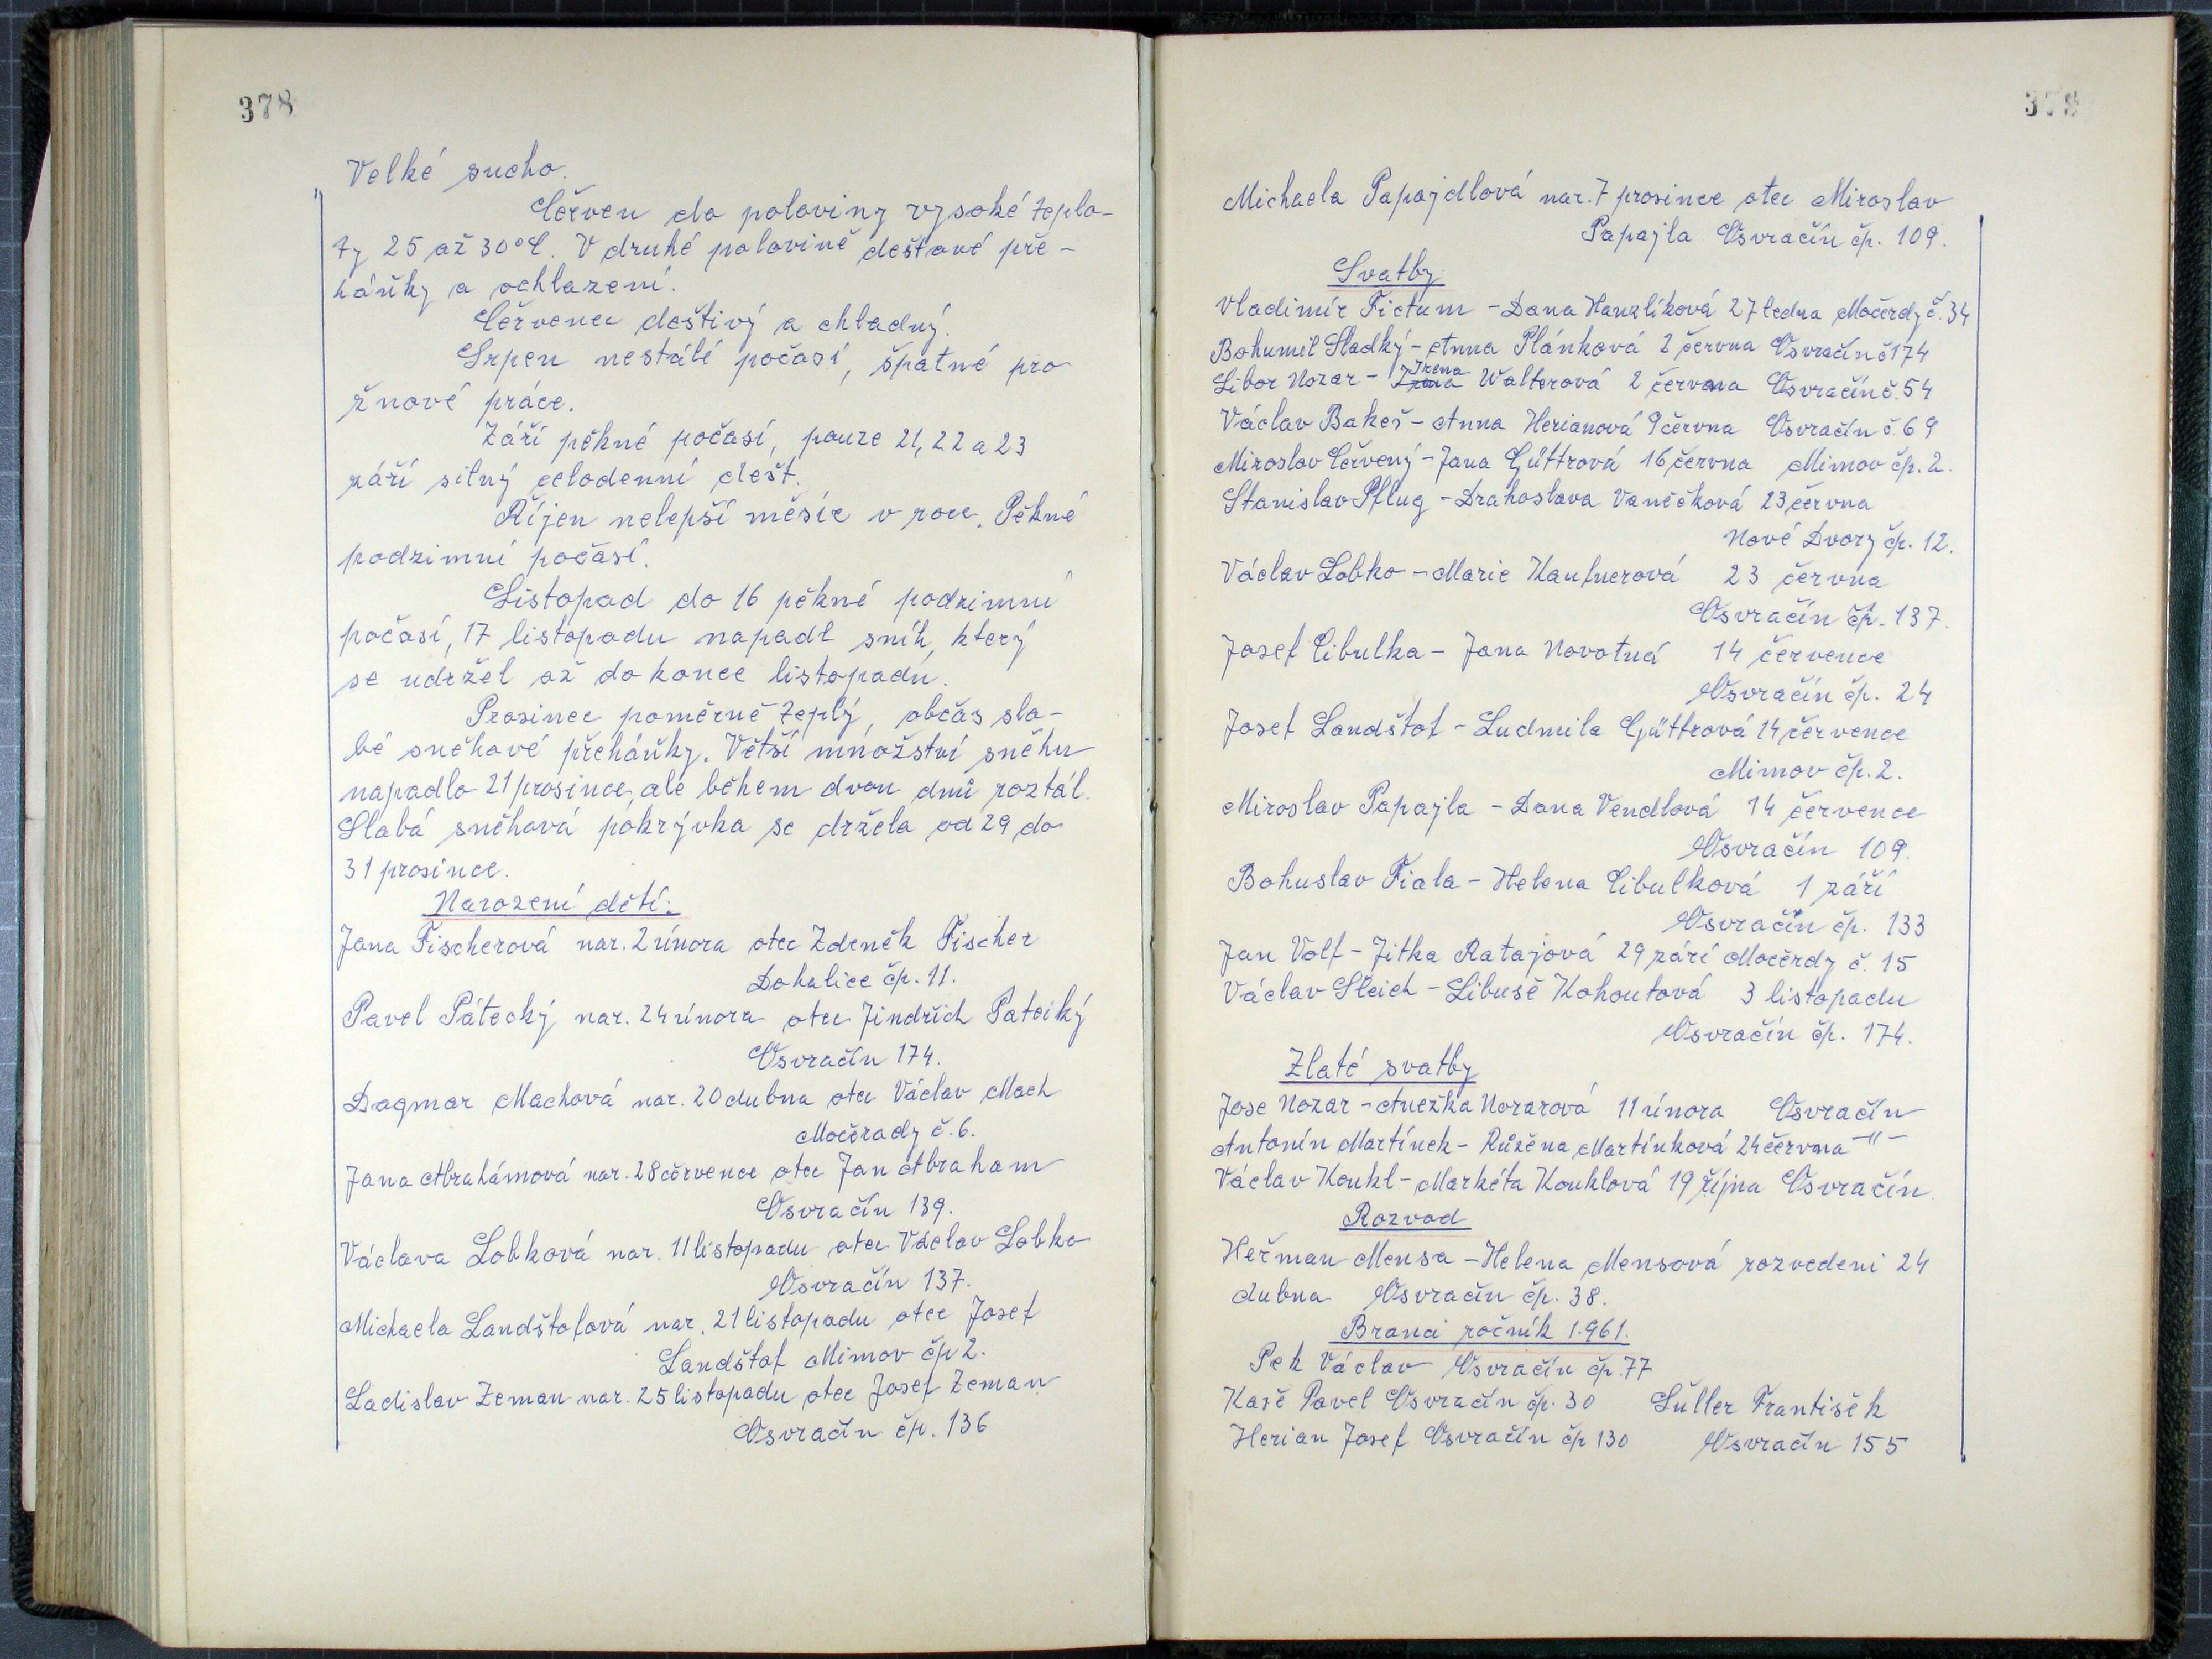 378
Velké sucho.
Červen do poloviny vysoké teplo-
ty 25 až 30°C. V druhé polovině dešťové pře-
háňky a ochlazení.
Červenec deštivý a chladný.
Srpen nestálé počasí, špatné pro
žnové práce.
Září pěkné počasí, pouze 21, 22 a 23
září silný celodenní dešt.
Říjen nelepší měsíc v roce. Pěkné
podzimní počasí.
Listopad do 16 pěkné podzimní
počasí, 17 listopadu napadl sníh, který
se udržel až do konce listopadu.
Prosinec poměrně teplý, občas sla-
bé sněhové přeháňky. Větší množství sněhu
napadlo 21 prosince, ale během dvou dnů roztál.
Slabá sněhová pokrývka se držela od 29 do
31 prosince.
Narození dětí:
Jana Fischerová nar. 2 února otec Zdeněk Fischer
Dohalice čp. 11.
Pavel Pátecký nar. 24 února otec Jindřich Patecký
Osvračín 174.
Dagmar Machová nar. 20 dubna otec Václav Mach
Močerady č. 6.
Jana Abrahámová nar. 28 července otec Jan Abraham
Osvračín 139.
Václava Lobková nar. 11 listopadu otec Václav Lobko
Osvračín 137.
Michaela Landštofová nar. 21 listopadu otec Josef
Landštof Mimov čp 2.
Ladislav Zeman nar. 25 listopadu otec Josef Zeman
Osvračín čp. 136
379
Michaela Papajdlová nar. 7 prosince otec Miroslav
Papajla Osvračín čp. 109.
Svatby
Vladimír Fictum - Dana Hanzlíková 27 ledna Močerdy č. 34
Bohumil Sladký - Anna Plánková 2 června Osvračín č 174
Libor Nozar - Irena Walterová 2 června Osvračín č. 54
Václav Bakeš - Anna Herianová 9 června Osvračín č. 69
Miroslav Červený - Jana Güttrová 16 června Mimov čp. 2.
Stanislav Pflug - Drahoslava Vaněčková 23 června
Nové Dvory čp. 12.
Václav Lobko - Marie Kaufnerová 23 června
Osvračín čp. 137.
Josef Cibulka - Jana Novotná 14 července
Osvračín čp. 24
Josef Landštof - Ludmila Güttrová 14 července
Mimov čp. 2.
Miroslav Papajla - Dana Vendlová 14 července
Osvračín 109.
Bohuslav Fiala - Helena Cibulková 1 září
Osvračín čp. 133
Jan Volf - Jitka Ratajová 29 září Močerdy č. 15
Václav Sleich - Libuše Kohoutová 3 listopadu
Osvračín čp. 174.
Zlaté svatby
Jose Nozar - Anežka Nozarová 11 února Osvračín
Antonín Martínek - Růžena Martínková 24 června -"-
Václav Koukl - Markéta Kouklová 19 října Osvračín.
Rozvod
Heřman Mensa - Helena Mensová rozvedeni 24
dubna Osvračín čp. 38.
Branci ročník 1.961.
Pek Václav Osvračín čp. 77
Kaše Pavel Osvračín čp. 30 Šuller František
Herian Josef Osvračín čp 130 Osvračín 155